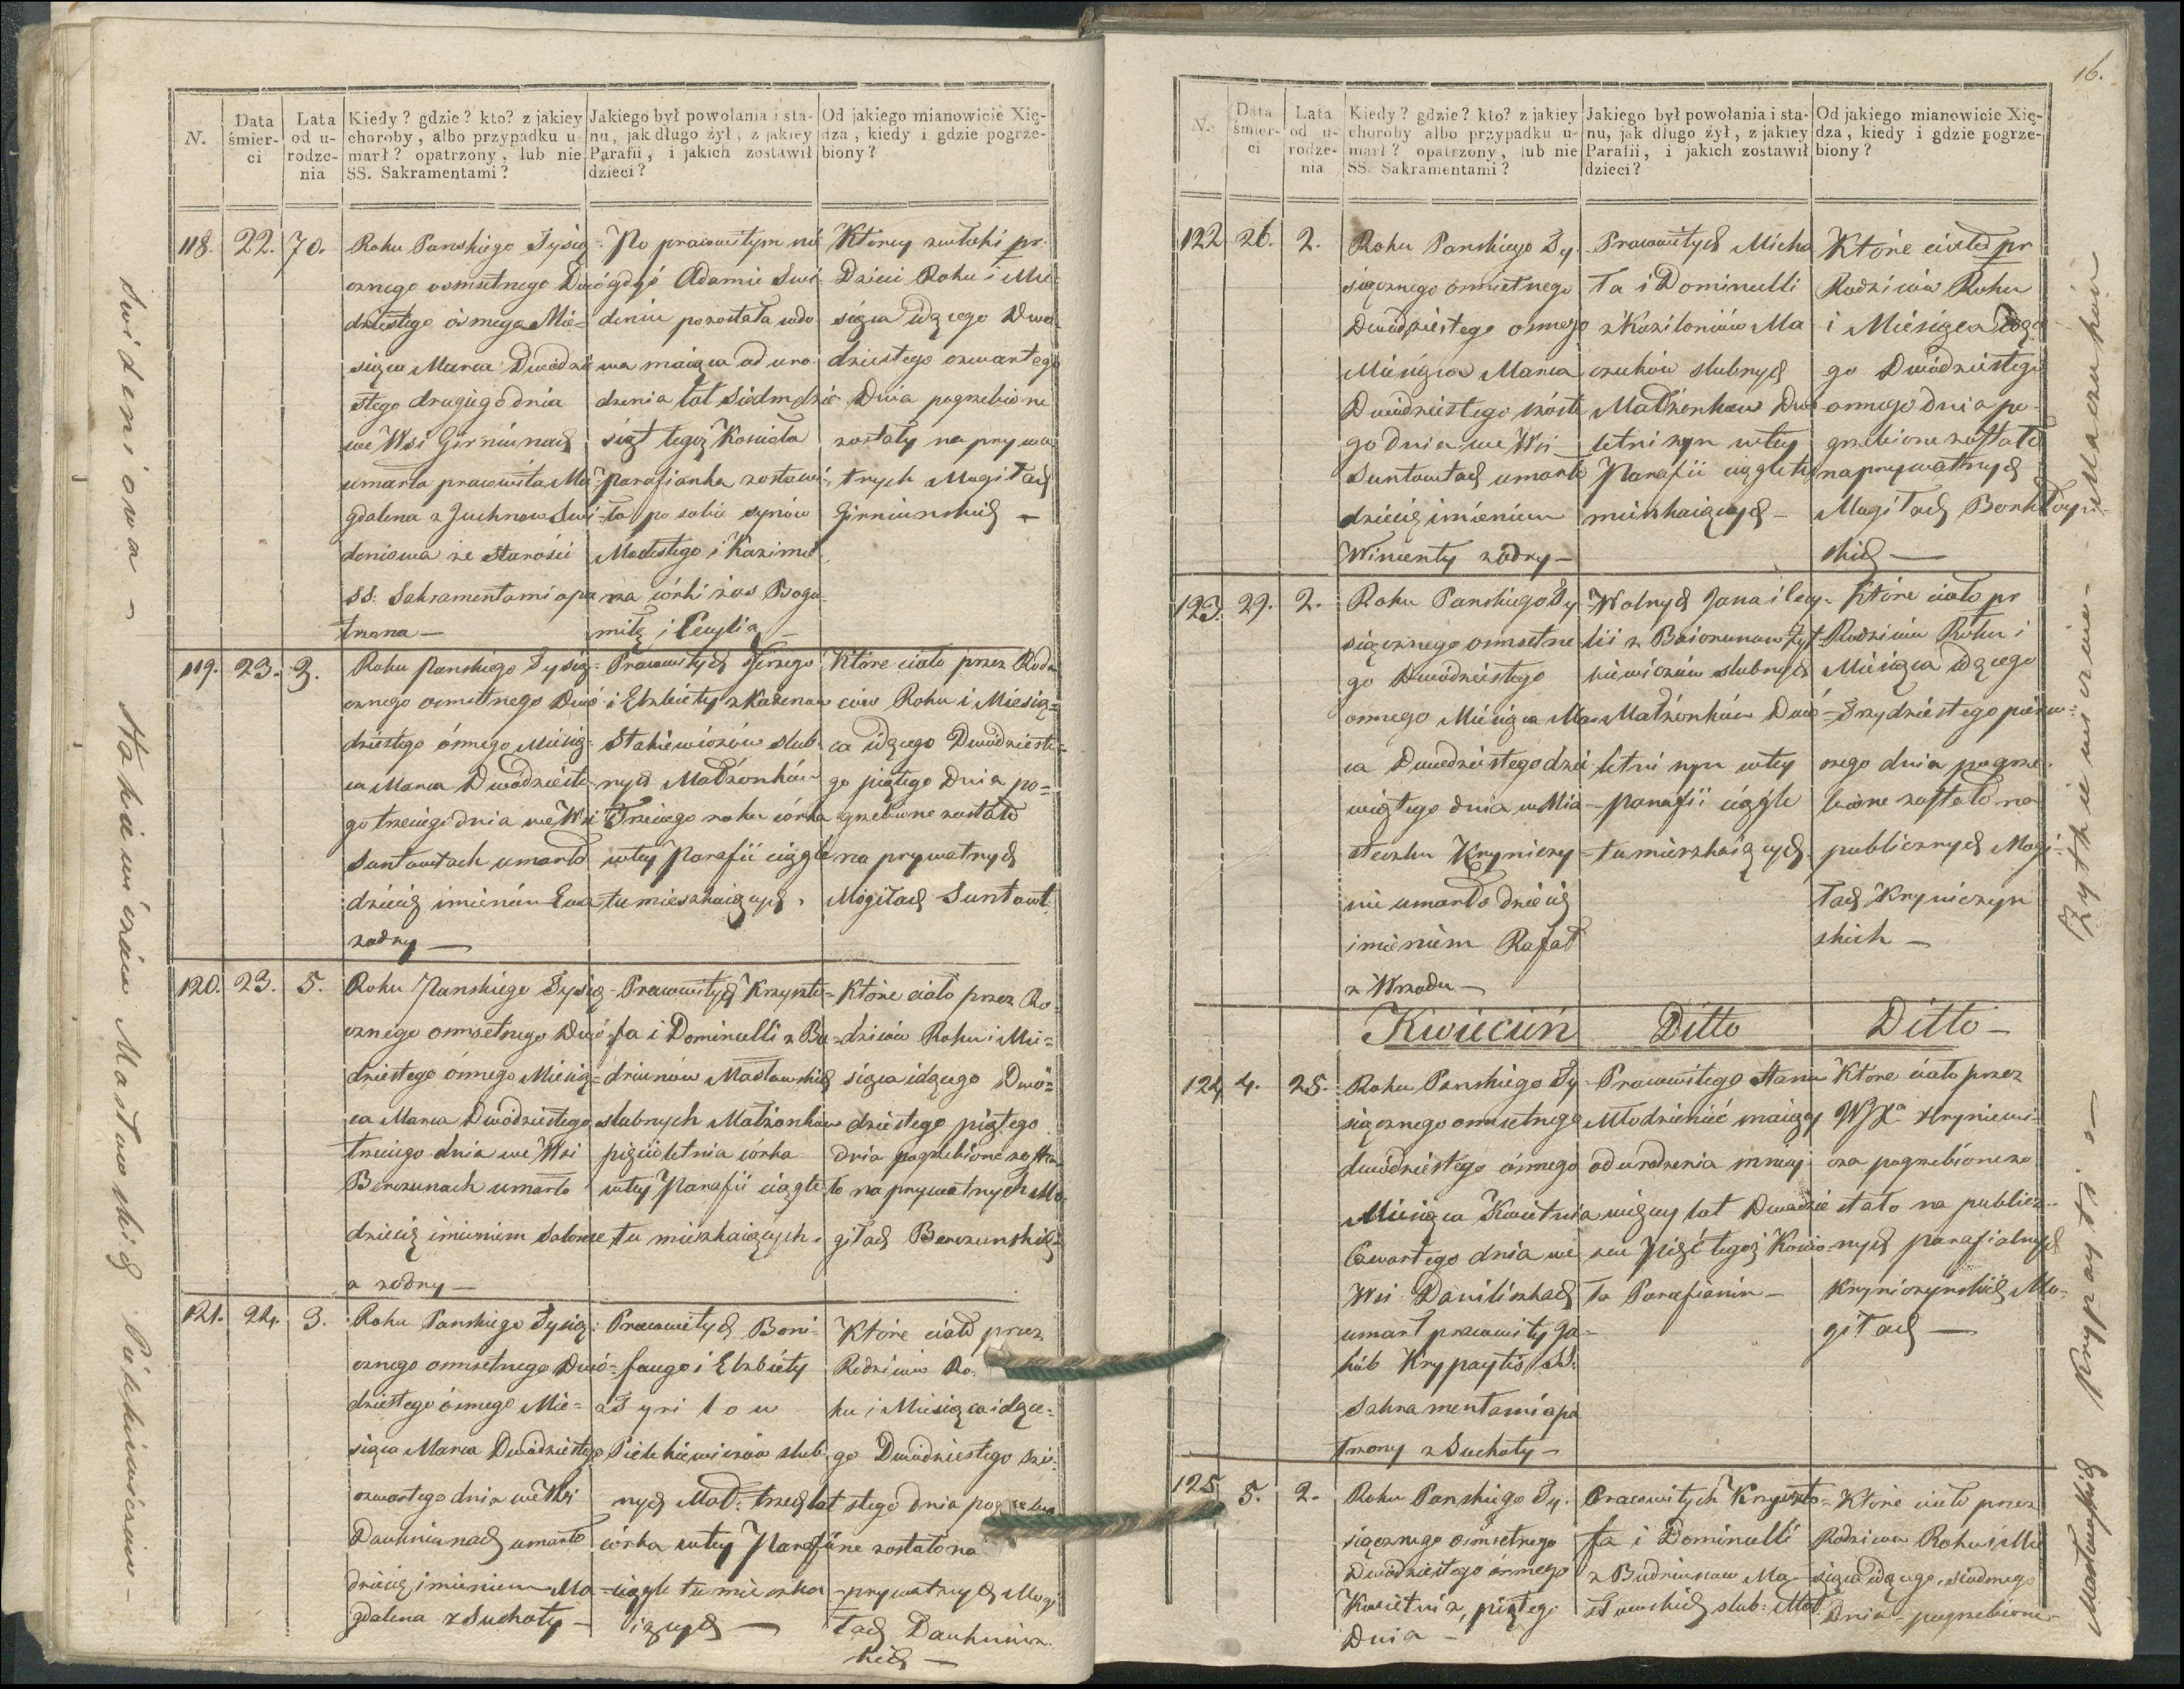 N.
Data śmierci
Lata od urodzenia
Kiedy? gdzie? kto? z jakiey
choroby, albo przypadku u-
marł? opatrzony, lub nie
SS. Sakramentami?
Jakiego był powołania i sta-
nu, jak długo żył, z jakiey
Parafii, i jakich zostawił
dzieci?
Od jakiego mianowicie Xię-
dza, kiedy i gdzie pogrze-
biony?
118. 22. 70.
Roku Panskiego Tysią-
cznego osmsetnego Dwó
dziestego ósmego Mie-
siąca Marca Dwódzie
stego drugiego dnia
we Wsi Girniunach
umarła pracowita Ma
gdalena z Juchnow Swi-
deniowa ze starości
SS. Sakramentami opa
trzona —
Po pracowitym nie
gdyś Adamie Swi-
deniu pozostała wdo
wa maiąca od uro-
dzenia lat siedmdzie
siąt tegoż Koscioła
parafianka zostawi-
ła po sobie synów
Modestego i Kazimie
rza córki zas Bogu
miłę i Cecylią —
Którey zwłoki pr.
Dzieci Roku i Mie-
siąca idącego Dwo
dziestego czwartego
Dnia pogrzebione
zostały na prywa
tnych Mogiłach
Girniunskich —
119. 23. 3.
Roku Panskiego Tysią-
cznego osmsetnego Dwó
dziestego ósmego Miesią-
ca Marca Dwódzieste
go trzeciego dnia we Wsi
Suntowtach umarło
dziecię imieniem Ewa
z odry —
Pracowitych Jerzego
i Elzbiety z Kazenow
Stakiewiczów slub-
nych Małżonków
Trzeciego roku córka
w tey Parafii ciągle
tu mieszkaiących.
Które ciało przez Rodzi
ców Roku i Miesią=
ca idącego Dwódzieste=
go piątego Dnia po=
grzebione zostało
na prywatnych
Mogiłach Suntowt.
120. 23. 5.
Roku Panskiego Tysią-
cznego osmsetnego Dwó
dziestego ósmego Miesią=
ca Marca Dwódziestego
trzeciego dnia we Wsi
Berczunach umarło
dziecię imieniem Salome
a z odry —
Pracowitych Krzyszto=
fa i Dominicelli z Bu
driunów Masłowskich
slubnych Małżonków
pięcioletnia córka
w tey Parafii ciągle
tu mieszkaiących.
Które ciało przez Ro
dziców Roku i Mie=
siąca idącego Dwó=
dziestego piątego
dnia pogrzebione zosta
ło na prywatnych Mo
giłach Berczunskich
121. 24. 3.
Roku Panskiego Tysią:
cznego osmsetnego Dwó
dziestego ósmego Mie-
siąca Marca Dwódziestego
czwartego dnia we Wsi
Daukniunach umarło
dziecię imieniem Ma
gdalena z Suchoty —
Pracowitych Boni-
facego i Elzbiety
z Tyrilow
Pietkiewiczów slub.
nych Mał: trzech lat
córka w tey Parafii
ciągle tu mieszka
iących —
Które ciało przez
Rodziców Ro-
ku i Miesiąca idące=
go Dwódziestego szó-
stego dnia pogrzebio
ne zostało na
prywatnych Mogi
łach Daukniun
skich —
Swideniowa — Stakiewiczówna Masłowskich Pietkiewiczowna —
16.
N.
Data śmierci
Lata od urodzenia
Kiedy? gdzie? kto? z jakiey
choroby albo przypadku u-
marł? opatrzony, lub nie
SS. Sakramentami?
Jakiego był powołania i sta-
nu, jak długo żył, z jakiey
Parafii, i jakich zostawił
dzieci?
Od jakiego mianowicie Xię-
dza, kiedy i gdzie pogrze-
biony?
122 26. 2.
Roku Panskiego Ty
siącznego osmsetnego
Dwódziestego osmego
Miesiąca Marca
Dwódziestego szóste
go dnia we Wsi
Suntowtach umarło
dziecię imieniem
Wincenty z odry —
Pracowitych Micha
ła i Dominicelli
z Kuziloniów Ma
czuków slubnych
Małżonkow Dwó
letni syn w tey
Parafii ciągle tu
mieszkaiących —
Które ciało pr
Rodziców Roku
i Miesiąca idące
go Dwódziestego
osmego dnia po-
grzebione zostało
na prywatnych
Mogiłach Borkłoyn
skich —
123. 29. 2.
Roku Panskiego Ty
siącznego osmsetne
go Dwódziestego
osmego Miesiąca Mar
ca Dwódziestego dzie
wiątego dnia w Mia
steczku Krynicz y
nie umarło dziecię
imieniem Rafał
z Wrzodu —
Wolnych Jana i Cecy-
lii z Boiorunow Żyt
kiewiczów slubnych
Małżonków Dwó
letni syn w tey
parafii ciągle
tu mieszkaiących.
Które ciało pr
Rodziców Roku i
Miesiąca idącego
Trzydziestego pierw=
szego dnia pogrze
bione zostało na
publicznych Mogi-
łach Kryniczyn
skich —
Kwiecień Ditto Ditto —
124 4. 25.
Roku Panskiego Ty
siącznego osmsetnego
dwódziestego ósmego
Miesiąca Kwietnia
Czwartego dnia we
Wsi Daniliszkach
umarł pracowity Ja-
kób Krypaytis SS.
Sakramentami opa
trzony z Suchoty —
Pracowitego Stanu
Młodzieniec maiący
od urodzenia mniey
więcey lat Dwadzie
scia Pięć tegoż Koscio
ła Parafianin —
Które ciało przez
WJXa Hryniewi-
cza pogrzebione zo
stało na publicz-
nych parafialnych
Kryniczynskich Mo-
giłach —
125 5. 2.
Roku Panskiego Ty.
siącznego osmsetnego
Dwódziestego ósmego
Kwietnia, piątego
Dnia —
Pracowitych Krzyszto-
fa i Dominicelli
z Budriunow Ma
słowskich slub: Mał.
Które ciało przez
Rodziców Roku i Mie
siąca idącego, siódmego
Dnia pogrzebione
Maczuków — Żytkiewiczów — Krypaytis — Masłowskich